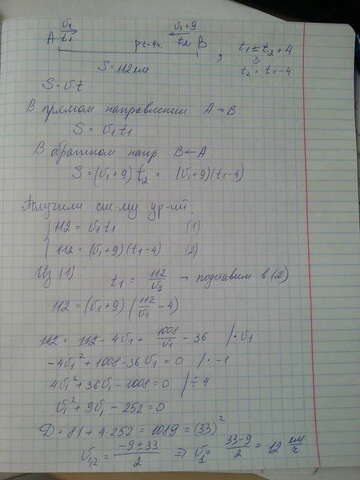 V₁ V₁+9
A t₁ t₂ B , t₁ = t₂ + 4
S = 112 км t₂ = t₁ - 4
S = Vt
В прямом направлении A → B
S = V₁t₁
В обратном напр. B ← A
S = (V₁+9) t₂ = (V₁+9)(t₁-4)
Получили систему ур-ий:
112 = V₁t₁ (1)
112 = (V₁+9)(t₁-4) (2)
Из (1) t₁ = 112/V₁ → подставим в (2)
112 = (V₁+9)(112/V₁ - 4)
112 = 112 - 4V₁ + 1008/V₁ - 36 / · V₁
-4V₁² + 1008 - 36V₁ = 0 / · -1
4V₁² + 36V₁ - 1008 = 0 / ÷ 4
V₁² + 9V₁ - 252 = 0
D = 81 + 4·252 = 1089 = (33)²
V₁,₂ = (-9 ± 33)/2 ⇒ V₁ = (33-9)/2 = 12 км/ч